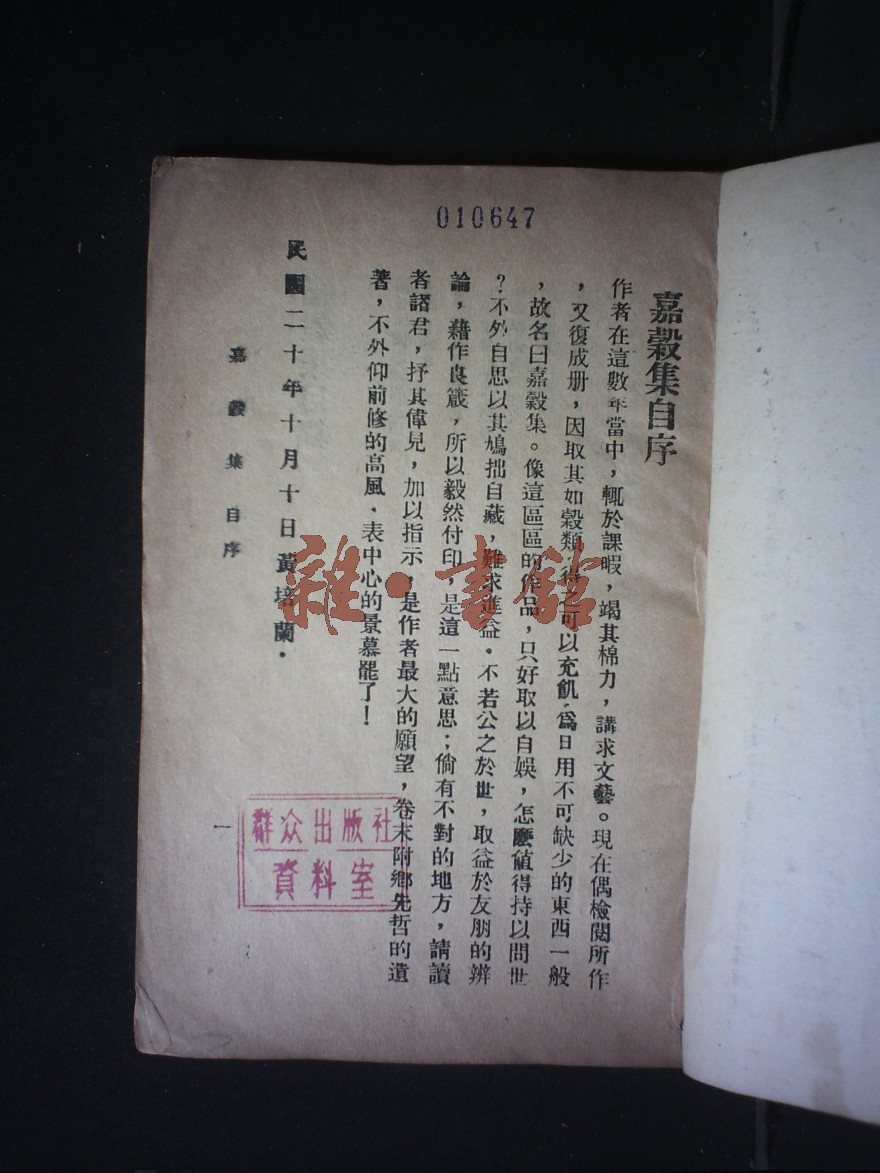 010647
嘉穀集自序
作者在這數年當中，輒於課暇，竭其棉力，講求文藝。現在偶檢閱所作
，又復成册，因取其如穀類，得之可以充飢，爲日用不可缺少的東西一般
，故名曰嘉穀集。像這區區的作品，只好取以自娛，怎麽値得持以問世
？不外自思以其鳩拙自藏，難求進益。不若公之於世，取益於友朋的辨
論，藉作良箴，所以毅然付印，是這一點意思；倘有不對的地方，請讀
者諸君，抒其偉見，加以指示，是作者最大的願望，卷末附鄉先哲的遺
著，不外仰前修的高風．表中心的景慕罷了！
民國二十年十月十日黃培蘭．
嘉穀集自序
一
群众出版社
資料室
雜·書館